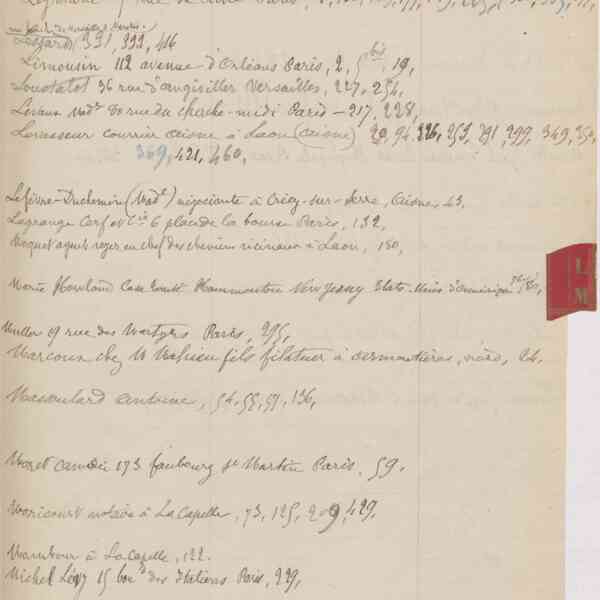 331, 332, 416
Limousin 112 avenue d'Orléans Paris, 2, 5 bis, 19,
Loustalot 36 rue d'angiviller Versailles, 227, 254,
Levaux Mad^e 30 rue du cherche-midi Paris - 217, 228,
Levasseur courrier aisne à Laon (aisne) 20, 94, 326, 253, 291, 299, 349, 350,
369, 421, 460,
Lefèvre-Duchemin (Mad^e) négociante à Crécy-sur-Serre, Aisne, 43,
Lagrange Cerf et Cie 6 place de la bourse Paris, 132,
agent voyer en chef des chemins vicinaux à Laon, 180,
L
M
Marie Howland Hammonton New Jersey Etats-Unis d'amérique
Muller 19 rue des Martyrs Paris, 295,
Marcoux chez M Mahieu fils filateur à armentières, nord, 24,
Massoulard antoine, 54, 55, 57, 136,
Moret 173 faubourg St Martin Paris, 59,
Moricourt notaire à La Capelle, 73, 125, 209, 429,
à La Capelle, 122.
Michel Lévy 15 bou^d des italiens Paris, 229,